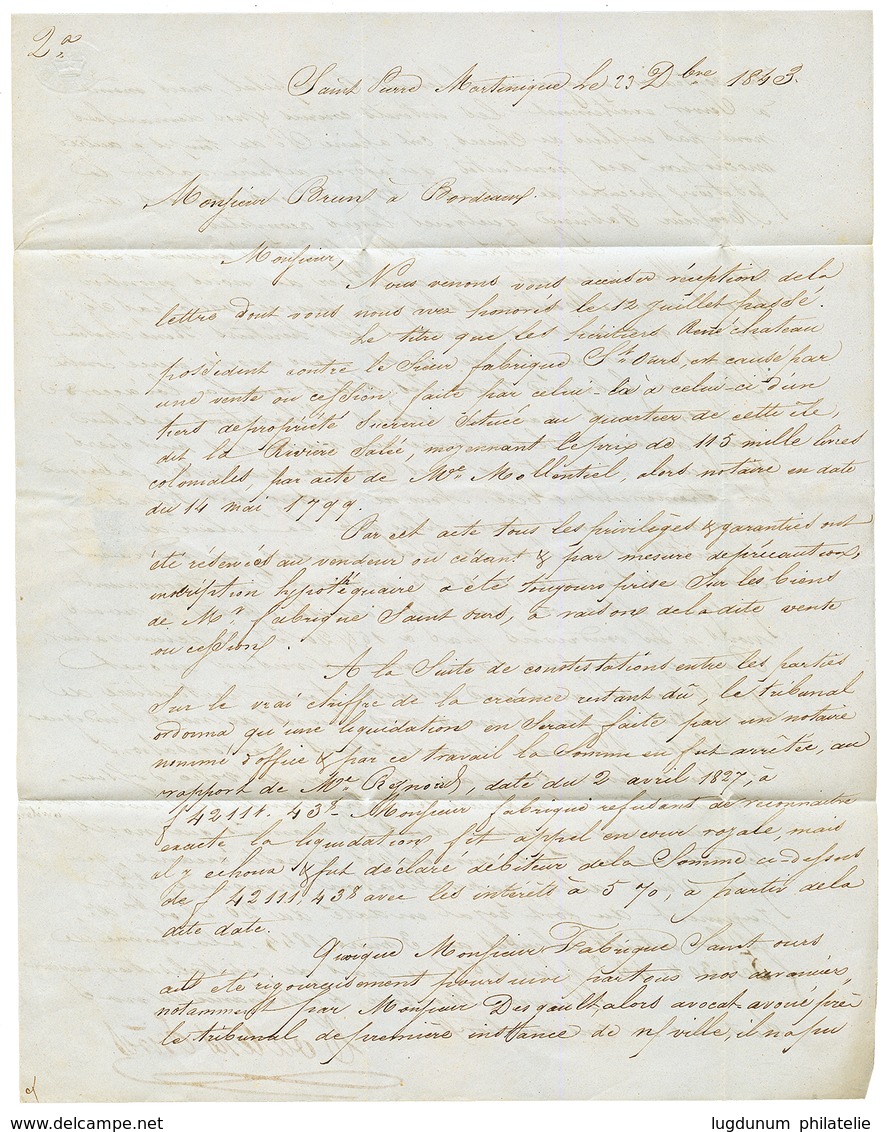 2a
Saint Pierre Martinique le 23 Dbre 1843.
Monsieur Brun à Bordeaux.
Monsieur,
Nous venons vous accuser réception de la
lettre dont vous nous avez honorés le 12 Juillet passé.
Le titre que les héritiers René chateau
possèdent contre le Sieur fabrique St. Ours, est causé par
une vente ou cession faite par celui-là à celui-ci d'un
tiers de propriété Sucrerie Située au quartier de cette île,
dit la Rivière Salée, moyennant le prix de 115 mille livres
coloniales, par acte de Me. Mollentiel, alors notaire en date
du 14 mai 1799.
Par cet acte tous les privilèges & garanties ont
été réservés au vendeur ou cédant & par mesure de précaution,
inscription hypothéquaire a été toujours prise Sur les biens
de Mr. fabrique Saint Ours, à raison de la dite vente
ou cession.
A la Suite de constestations entre les parties
Sur le vrai chiffre de la créance restant dû, le tribunal
ordonna qu'une liquidation en Serait faite par un notaire
nommé d'office & par ce travail la Somme en fut arrêtée, au
rapport de Me. Reynois, daté du 2 avril 1827, à
f 42111. 438. Monsieur fabrique refusant de reconnaître
exacte la liquidation fit appel en cour royale, mais
il y échoua & fut déclaré débiteur de la Somme ci-dessus
de f 42111 438 avec les intérêts à 5 %, à partir de la
dite date.
Quoique Monsieur Fabrique Saint Ours
ait été rigoureusement poursuivi par tous nos
notamment par Monsieur Desgault, alors avocat-avoué près
le tribunal de première instance de n/ ville, il n'a pu
www.delcampe.net
lugdunum philatelie